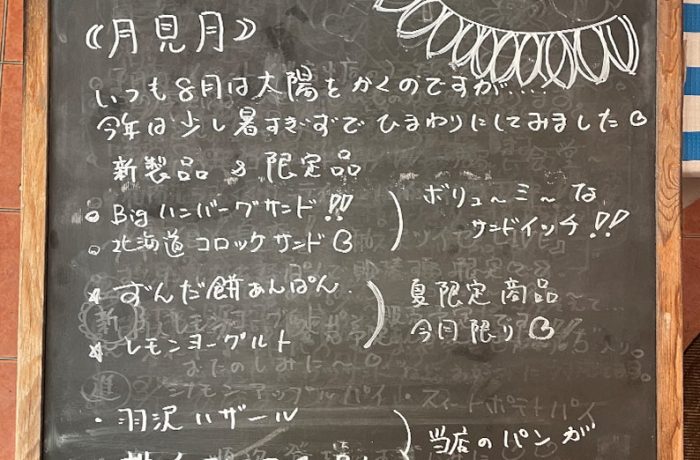 《月見月》
いつも8月は太陽をかくのですが....
今年は少し暑すぎずでひまわりにしてみました
新製品 & 限定品
Big ハンバーグサンド!!
北海道コロッケサンド
ボリュ〜ミ〜な
サンドイッチ!!
ずんだ餅あんぱん
レモンヨーグルト
夏限定商品
今月限り
・羽沢ハザール
当店のパンが